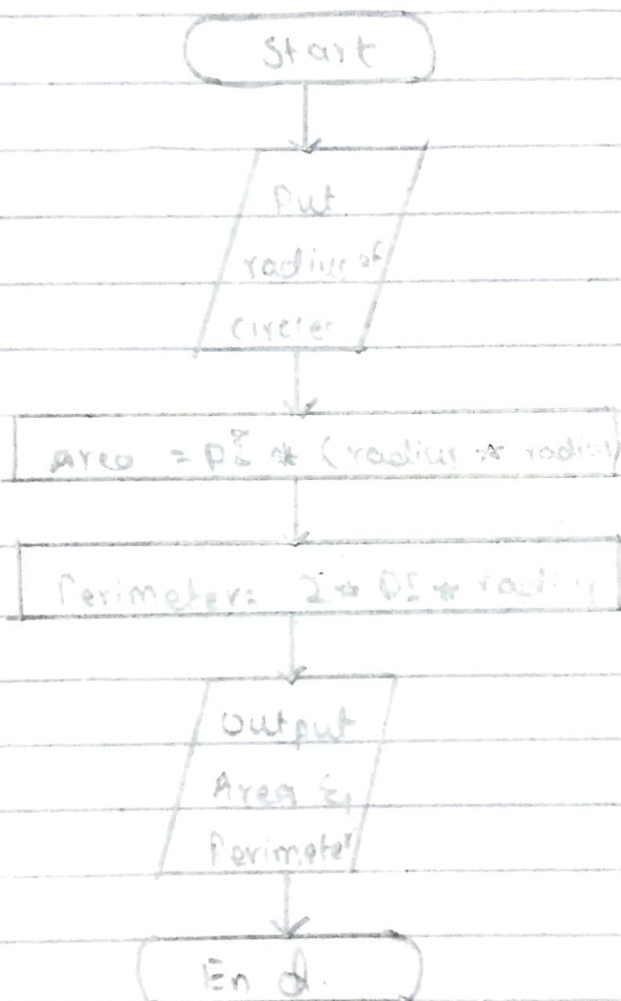 Start
Put
radius of
circle
Area = PI * (radius * radius)
Perimeter = 2 * PI * radius
Output
Area &
Perimeter
End.